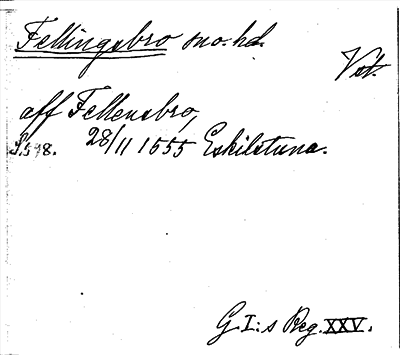 Fellingsbro sn o. hd.
Vstm.
aff Fellensbro,
S. 598. 28/11 1555 Eskilstuna.
G. I:s Reg. XXV.